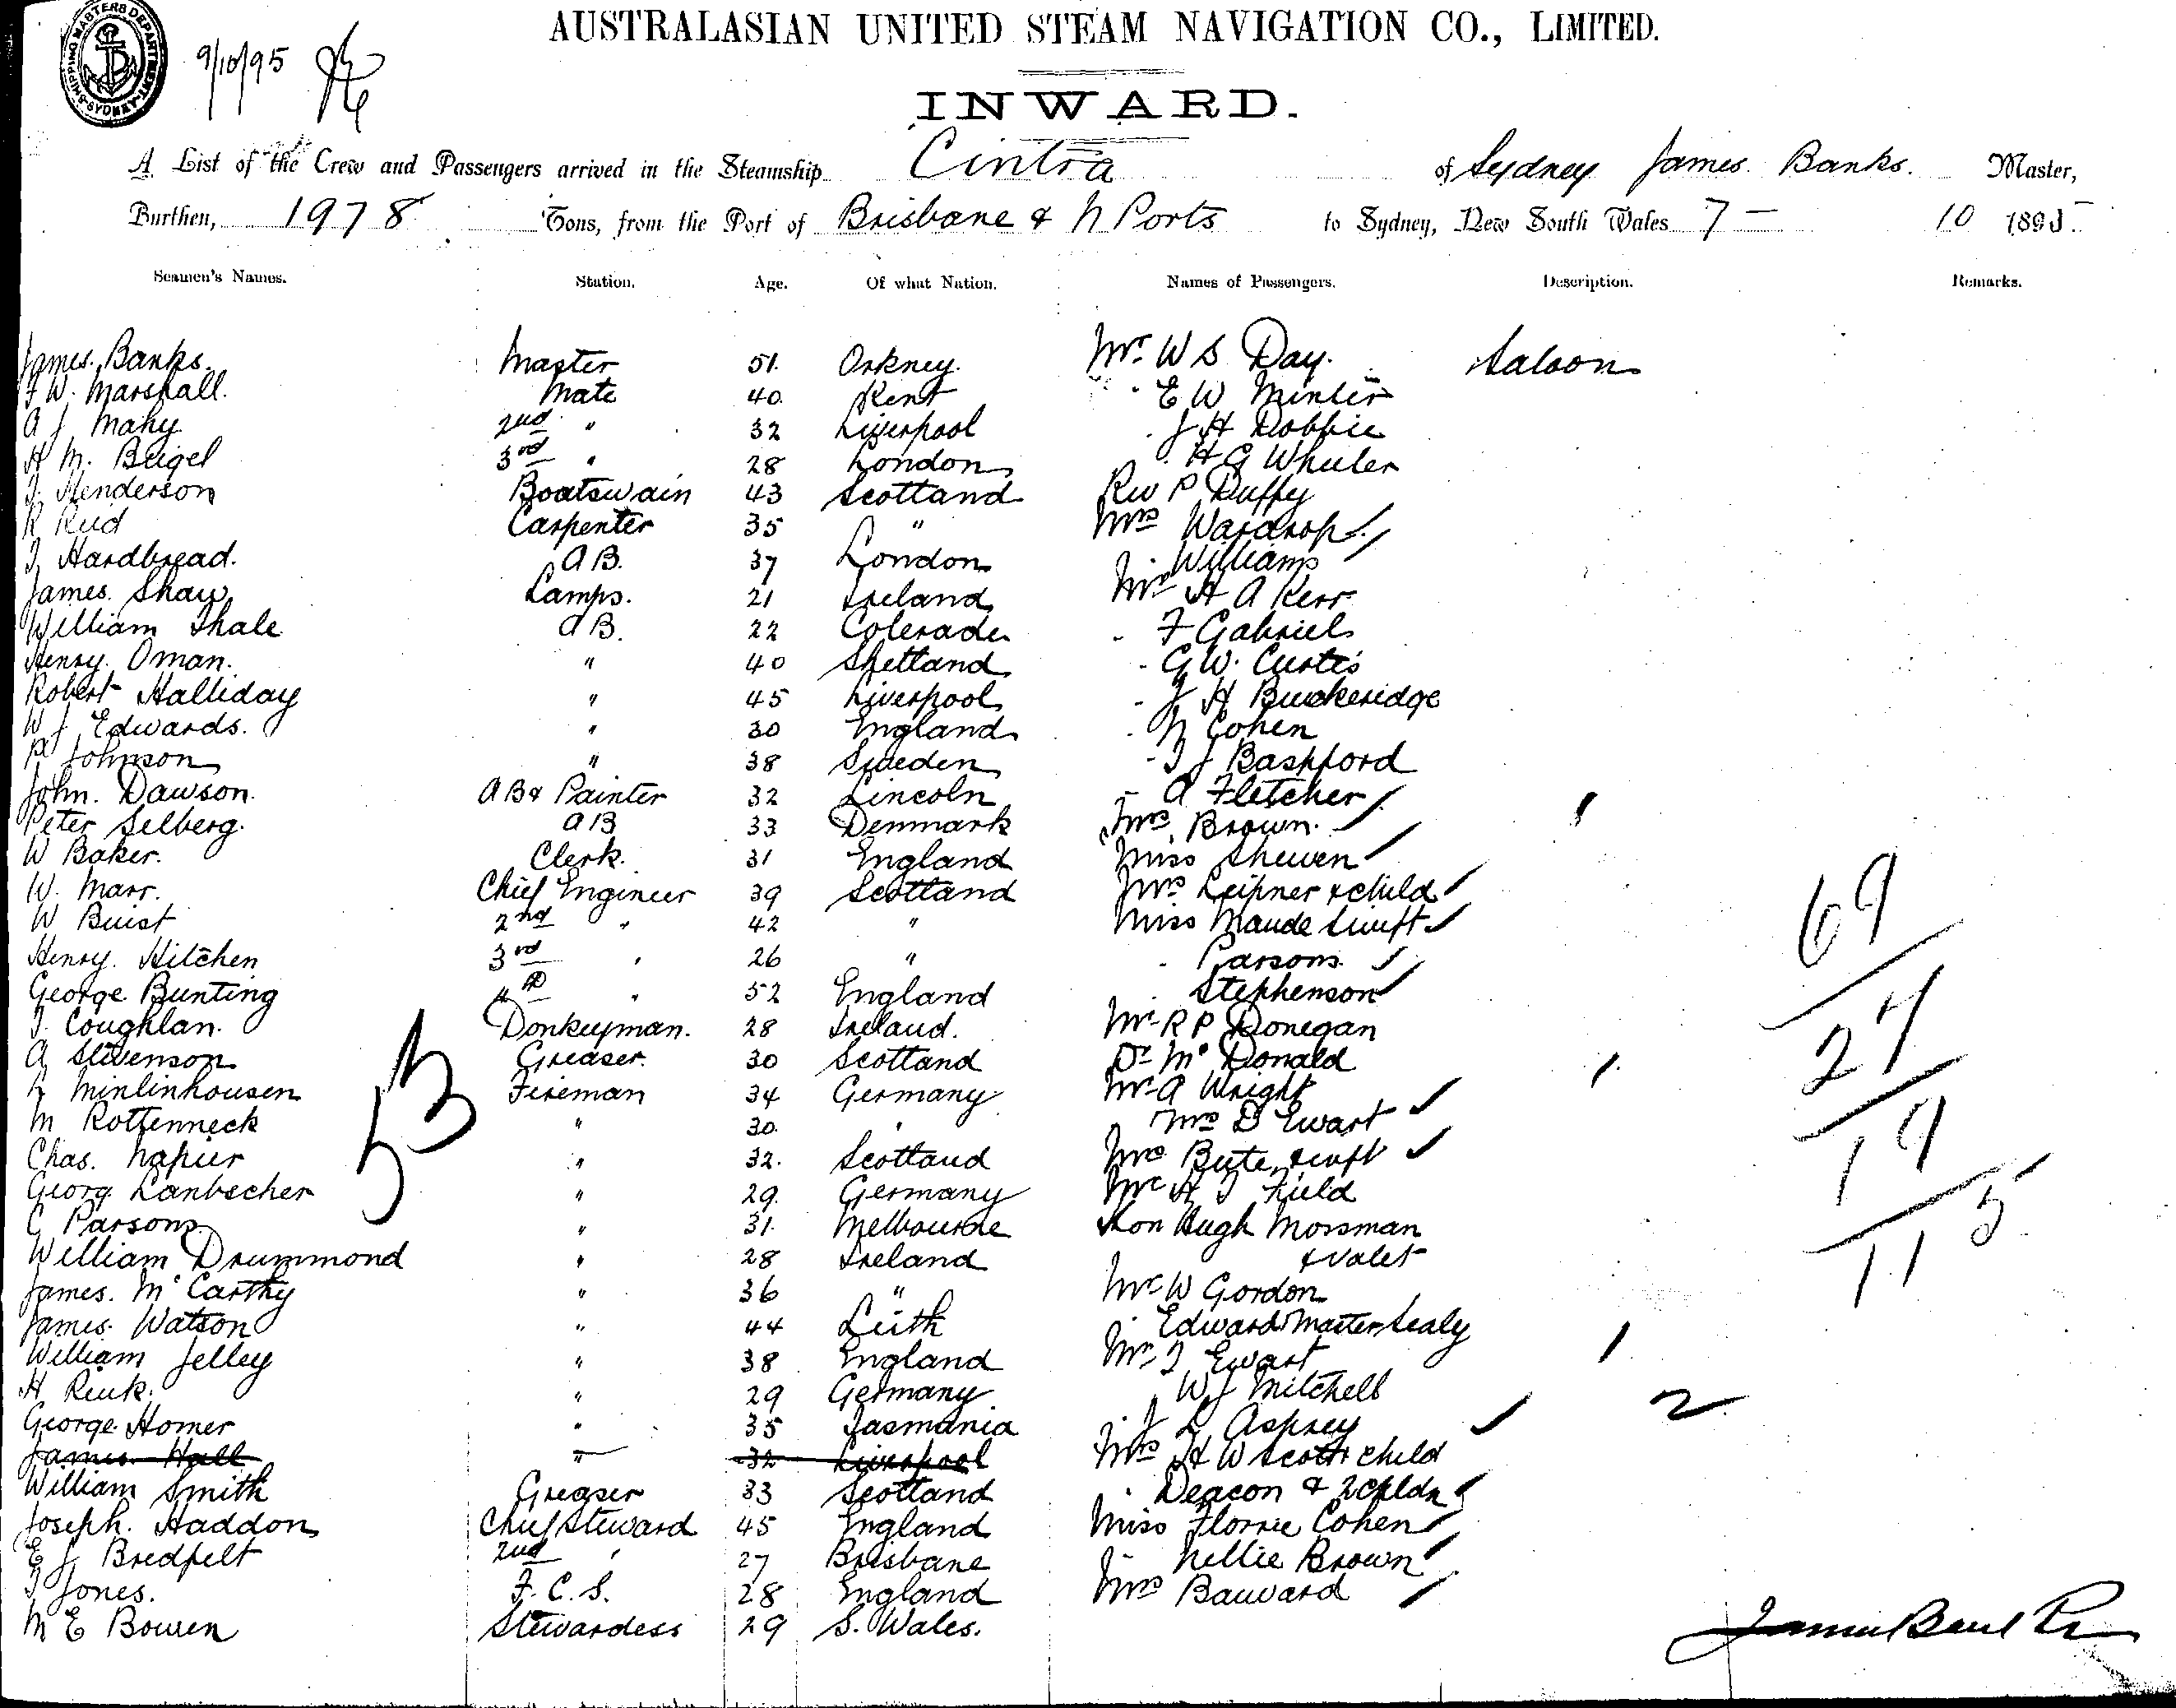 SHIPPING MASTERS DEPARTMENT SYDNEY
9/10/95
AUSTRALASIAN UNITED STEAM NAVIGATION CO., LIMITED.
INWARD.
A List of the Crew and Passengers arrived in the Steamship Cintra of Sydney James Banks. Master,
Burthen, 1978 Tons, from the Port of Brisbane & N Ports to Sydney, New South Wales 7 — 10 1895.
Seamen's Names. Station. Age. Of what Nation. Names of Passengers. Description. Remarks.
James Banks. Master 51. Orkney. Mr. W S Day. Saloon
F W. Marshall. Mate 40. Kent " E W Minter
A J Mahy 2nd " 32 Liverpool " J H Dobbie
H M. Beigel 3rd " 28 London " H G Wheeler
J. Henderson Boatswain 43 Scotland Rev P Duffy
R Reid Carpenter 35 " Mrs Wardrop
J. Hardbread. A B. 37 London " Williams
James Shaw Lamps. 21 Ireland Mr H A Kerr
William Thale A B. 22 Colerade " F Gabriel
Henry Oman. " 40 Shetland " G W. Curtis
Robert Halliday " 45 Liverpool " J H Buckeridge
W J Edwards. " 30 England " N Cohen
P Johnson " 38 Sweden " T J Bashford
John. Dawson. A B & Painter 32 Lincoln " A Fletcher
Peter Selberg. A B 33 Denmark Mrs Brown. 1
W Baker. Clerk. 31 England Miss Shewen
W. Marr. Chief Engineer 39 Scotland Mrs Leipner & child
W Buist 2nd " 42 " Miss Maude Swift
Henry. Hitchen 3rd " 26 " " Parsons
George Bunting 4th " 52 England " Stephenson
J. Coughlan. Donkeyman. 28 Ireland. Mr R P Donegan
A Stevenson Greaser. 30 Scotland Dr McDonald
Minlinhousen Fireman 34 Germany Mr A Wright 1.
M Rottenneck " 30. " Mrs D Ewart
Chas. Napier " 32. Scotland Mrs Bute Swift
Georg Lanbecher " 29. Germany Mr H J Field
C Parsons " 31. Melbourne Hon Hugh Mossman
William Drummond " 28 Ireland & Valet
James. McCarthy " 36 " Mr W Gordon
James Watson " 44 Leith " Edward Master Sealy
William Jelley " 38 England Mr J Ewart 1
H Reuk. " 29 Germany " W J Mitchell
George Homer " 35 Tasmania " J L Asprey 2
James Hall " 32 Liverpool Mrs H W Scott & child
William Smith Greaser 33 Scotland " Deacon & 2 chldn
Joseph. Haddon Chief Steward 45 England Miss Florrie Cohen
E J Bredfelt 2nd " 27 Brisbane " Nellie Brown
J Jones. F. C. S. 28 England Mrs Bauward
M E Bowen Stewardess 29 S. Wales.
53
69
27
19
5
11
James Banks